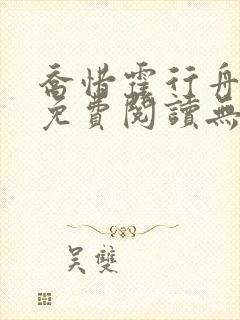 喬惜霍行舟
免費閱讀無
吴雙